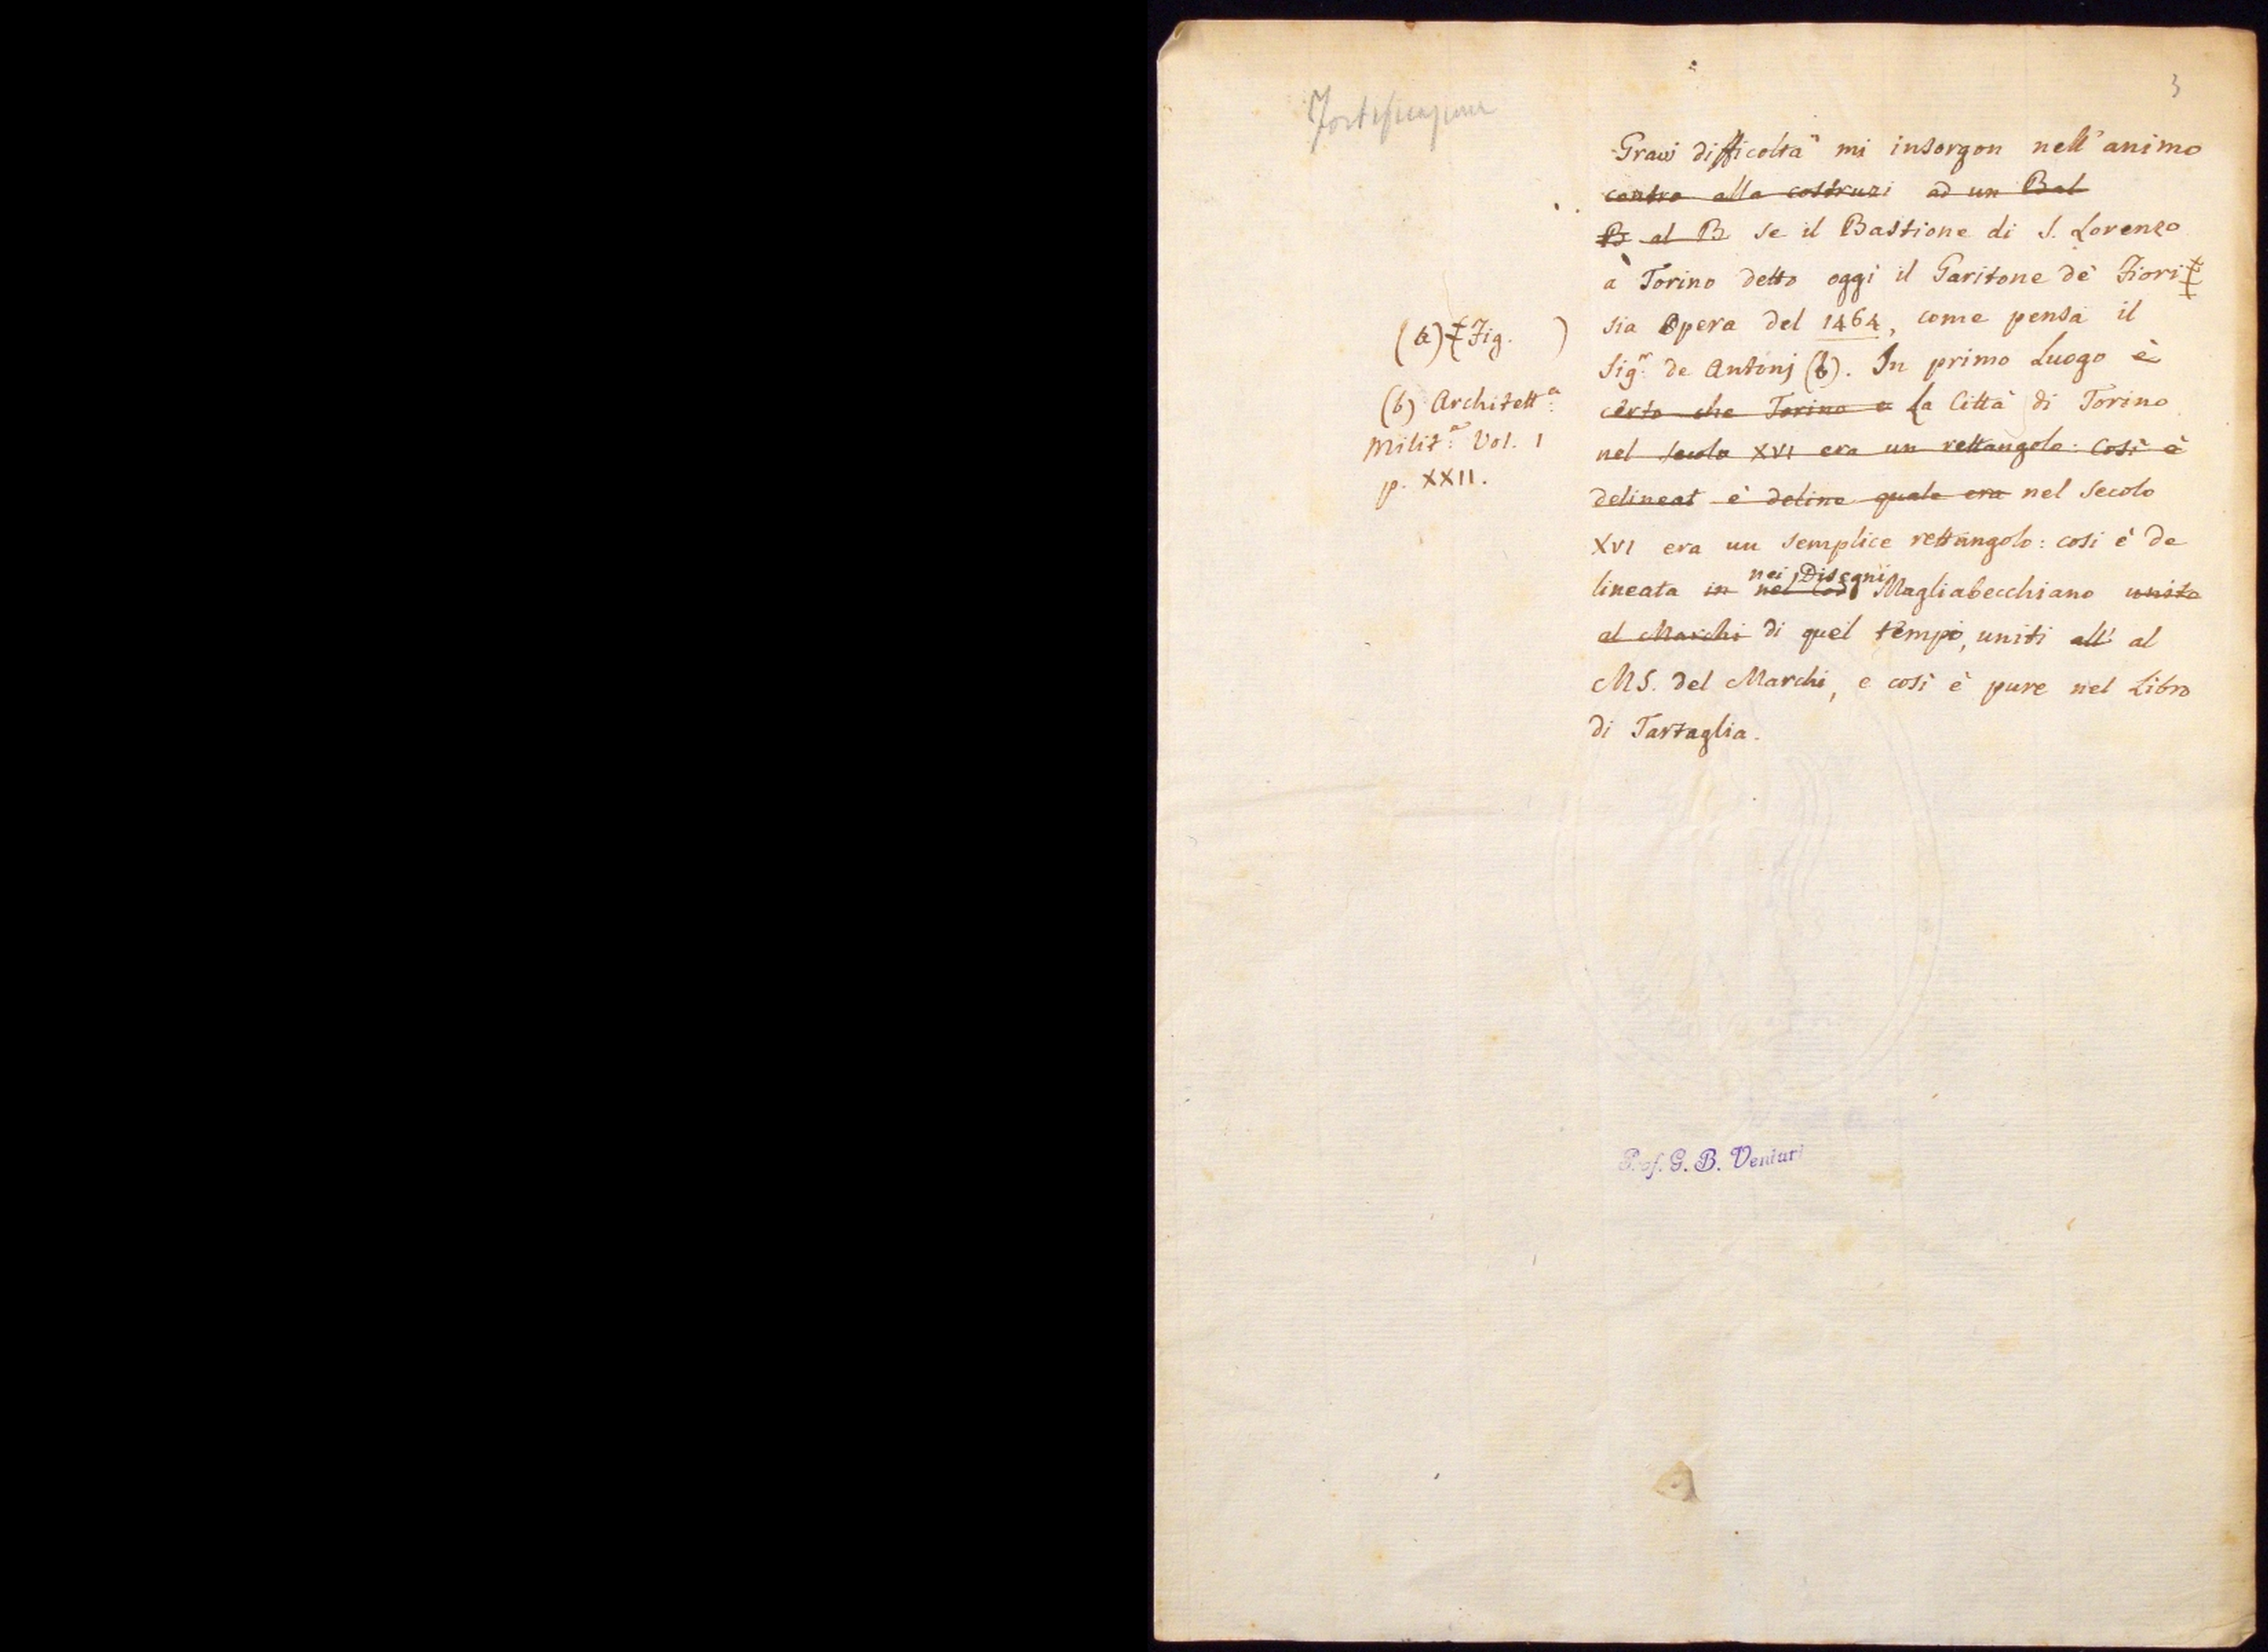 3
Fortificazione
Gravi difficoltà mi insorgon nell'animo
contro alla costruzi ad un Bal
B al B se il Bastione di S. Lorenzo
a Torino detto oggi il Garitone de' Fiori ‡
sia Opera del 1464, come pensa il
Sig.r de Antonj (b). In primo Luogo è
certo che Torino e La Città di Torino
nel secolo XVI era un rettangolo: Così è
delineat è deline quale era nel Secolo
XVI era un semplice rettangolo: così è de
nei Disegni
lineata in nel Cod Magliabecchiano unito
al Marchi di quel tempo, uniti all' al
MS. del Marchi, e così è pure nel Libro
di Tartaglia.
(a) ‡ (Fig. )
(b) Architett.a
Milit.a Vol. I
p. XXII.
Prof. G. B. Venturi